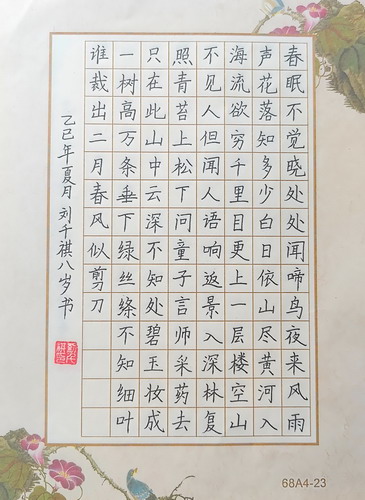 春眠不觉晓处处闻啼鸟夜来风雨
声花落知多少白日依山尽黄河入
海流欲穷千里目更上一层楼空山
不见人但闻人语响返景入深林复
照青苔上松下问童子言师采药去
只在此山中云深不知处碧玉妆成
一树高万条垂下绿丝绦不知细叶
谁裁出二月春风似剪刀
乙巳年夏月刘千祺八岁书
68A4-23